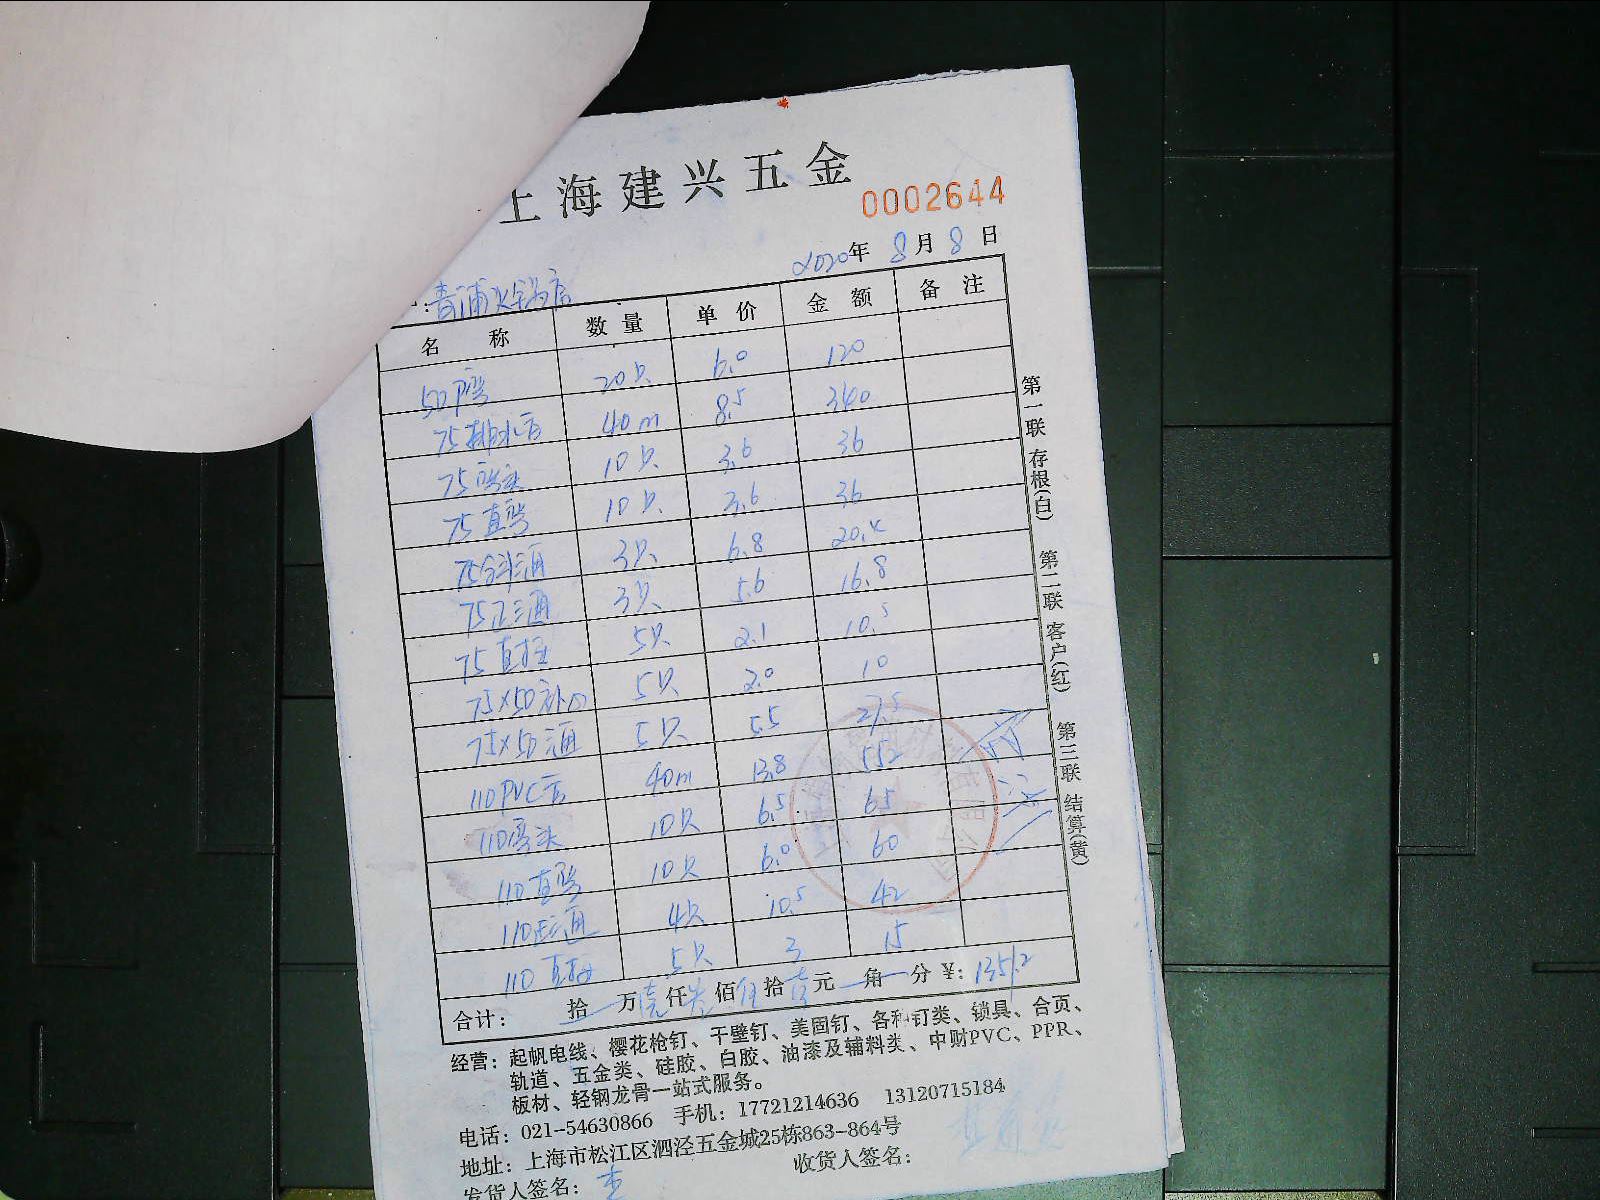 上海建兴五金
0002644
2020年 8月 8日
青浦火锅店
名 称 数 量 单 价 金 额 备 注
50P弯 20只 6.0 120
75排水管 40m 8.5 340
75弯头 10只 3.6 36
75直弯 10只 3.6 36
75斜三通 3只 6.8 20.4
75正三通 3只 5.6 16.8
75直接 5只 2.1 10.5
75×50补心 5只 2.0 10
75×50三通 5只 5.5 27.5
110PVC管 40m 13.8 552
110弯头 10只 6.5 65
110直弯 10只 6.0 60
110正三通 4只 10.5 42
110直接 5只 3 15
合计: 拾 万壹仟 佰伍拾壹元 角 分 ¥: 1351.2
第一联 存根(白) 第二联 客户(红) 第三联 结算(黄)
经营: 起帆电线、樱花枪钉、干壁钉、美固钉、各种钉类、锁具、合页、
轨道、五金类、硅胶、白胶、油漆及辅料类、中财PVC、PPR、
板材、轻钢龙骨一站式服务。
电话: 021-54630866 手机: 17721214636 13120715184
地址: 上海市松江区泗泾五金城25栋863-864号
发货人签名: 李 收货人签名: